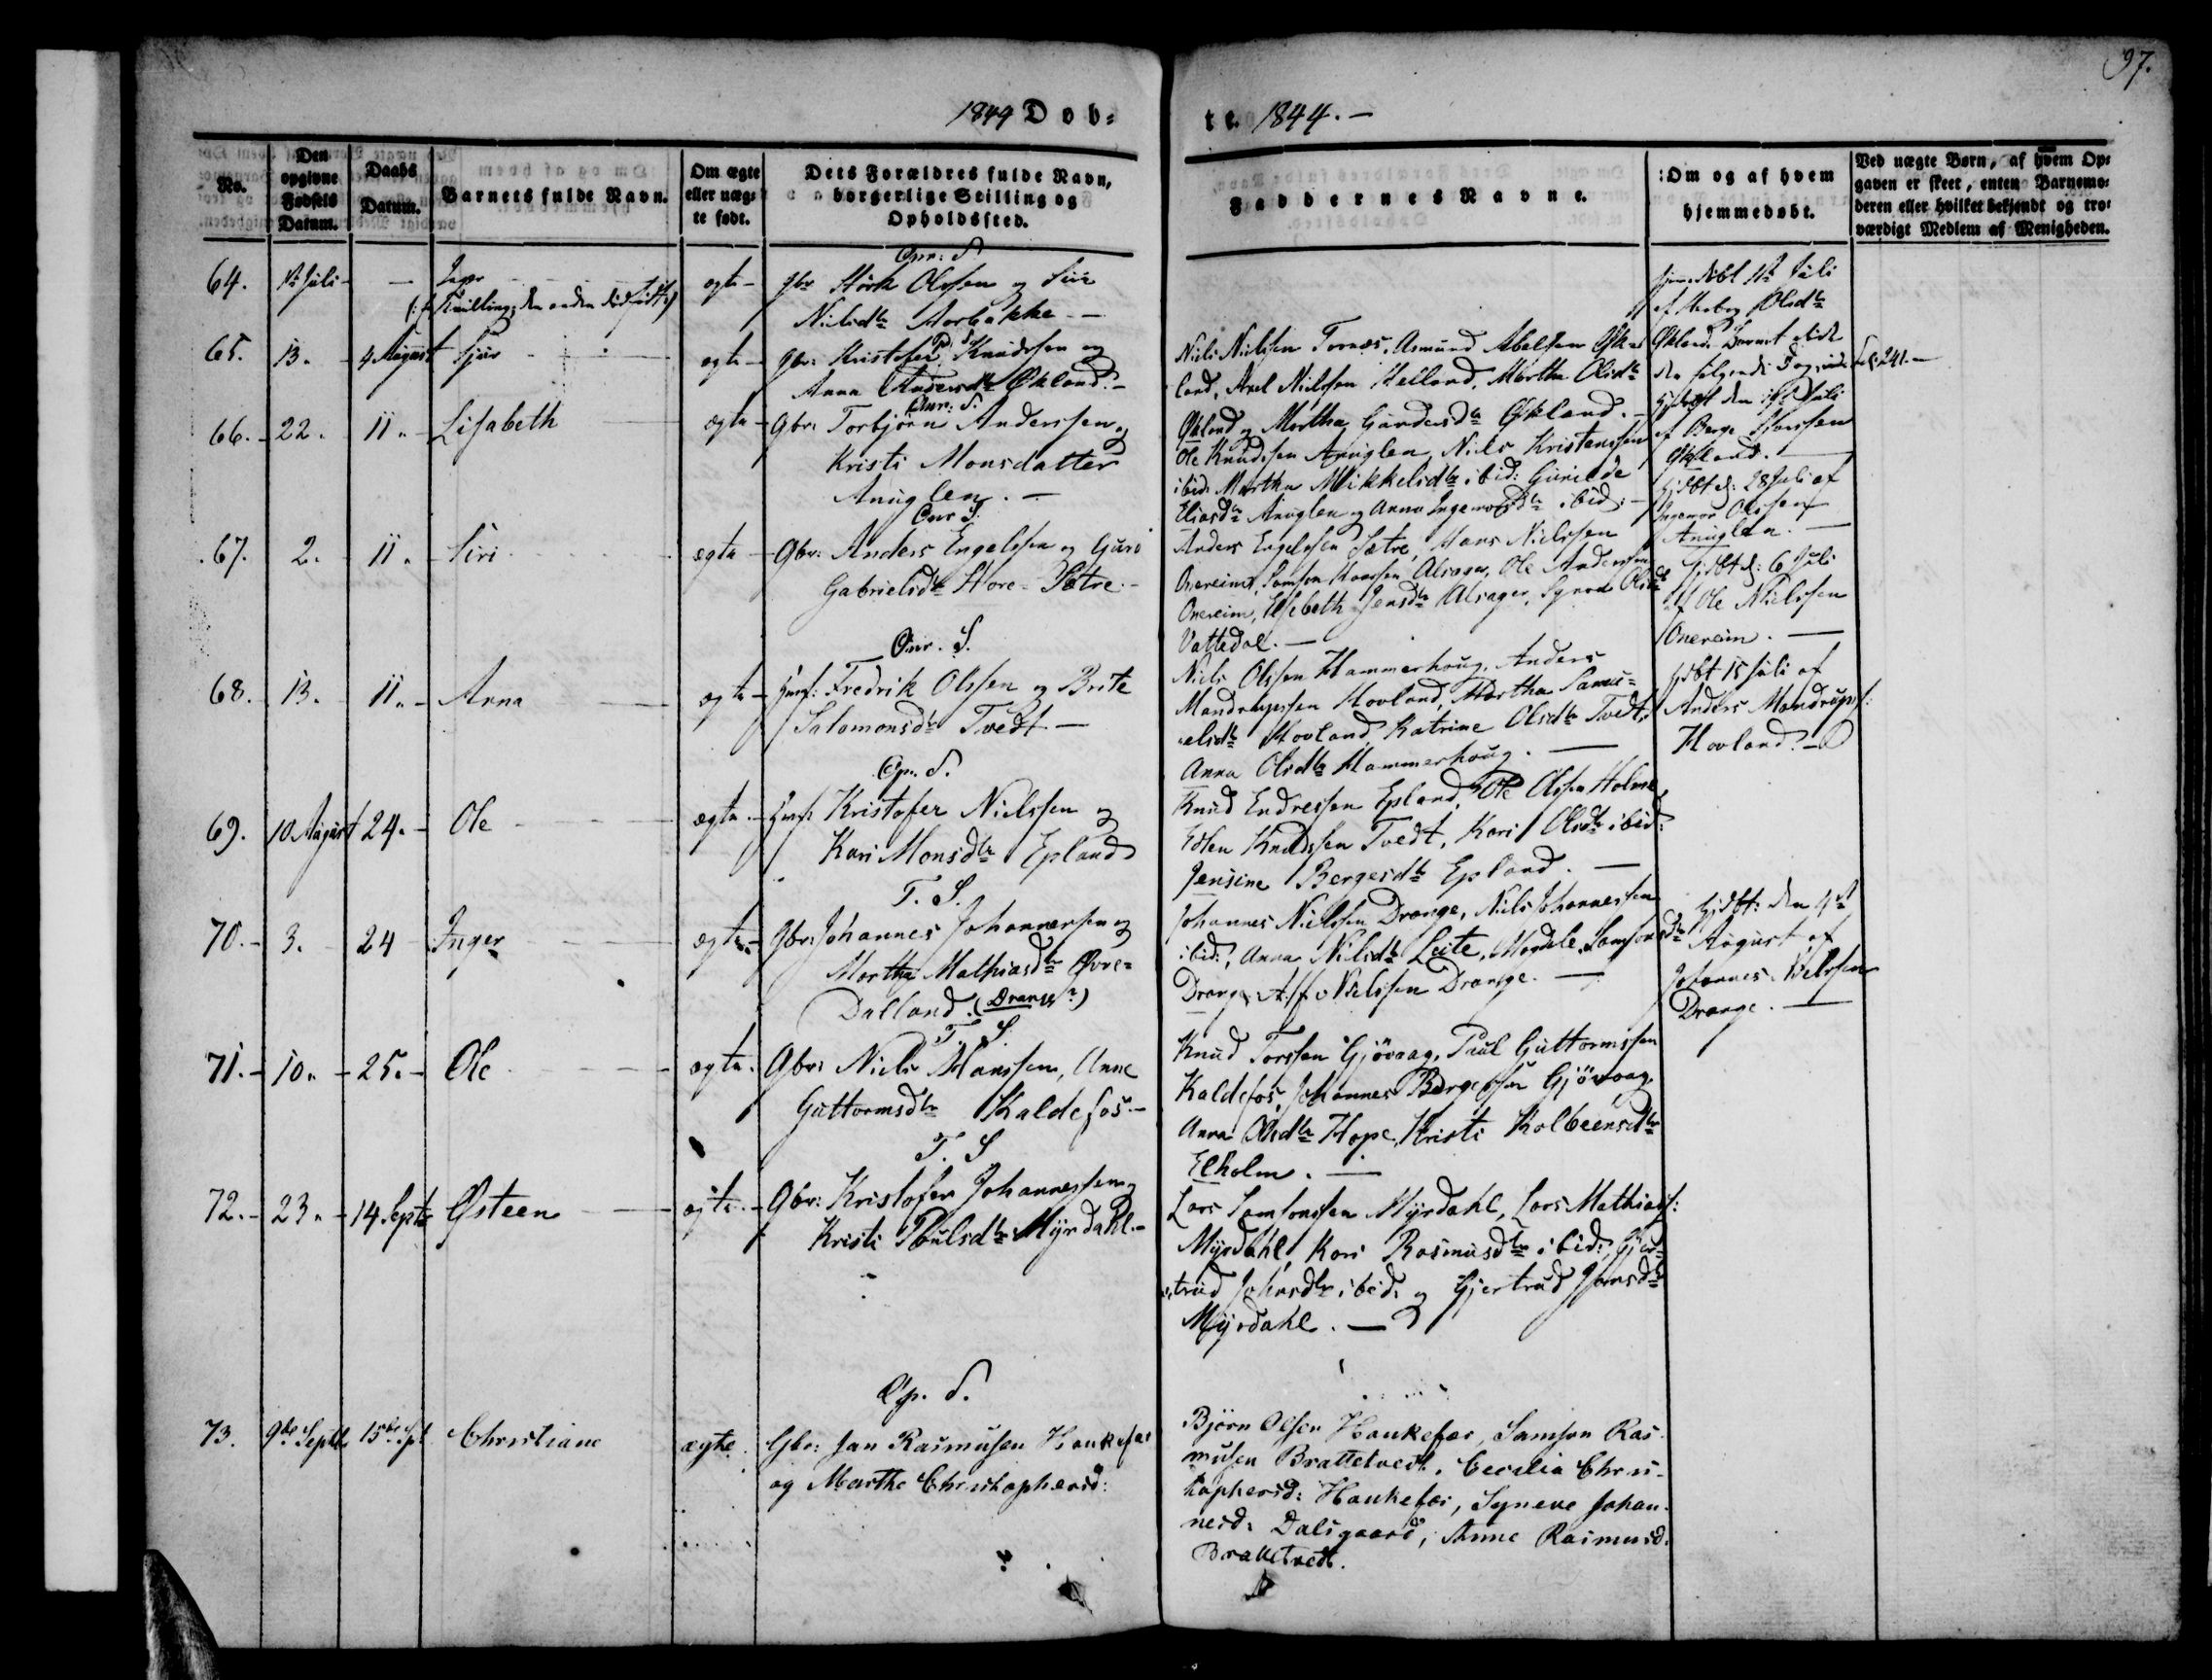 97.
1844 Døb-
te. 1844. -
No.
Den opgivne Fødsels Datum.
Daabs Datum.
Barnets fulde Navn.
Om ægte eller uægte født.
Dets Forældres fulde Navn, borgerlige Stilling og Opholdssted.
Faddernes Navne.
Om og af hvem hjemmedøbt.
Ved uægte Børn, af hvem Opgaven er skeet, enten Barnemoderen eller hvilket bekjendt og troværdigt Medlem af Menigheden.
Onr: S
64. Juli - - Inger ægte - Gbr Størk Olssen og Siri
Nielsdtr Aarbakke -
65. 13. - 4 August Sjur - ægte - Gbr: Kristofer Knudssen og
Anna Andersdtr Økland. -
Niels Nielssen Tornæs, Asmund Abelssen Øk-
land, Axel Nielssen Helland, Martha Olsdtr
Økland og Martha Gundersdtr Økland. -
af Berge Sjurssen
Økland. -
Fol: 241. -
Onr: S.
66. - 22. 11. - Lisabeth ægte - Gbr: Torbjørn Anderssen og
Kristi Monsdatter
Anuglen. -
Ole Knudssen Anuglen, Niels Kristenssen
ibid: Martha Mikkelsdtr ibid: Gurilde
Eliasdtr Anuglen og Anna Ingemorsdtr ibid: -
Hjdbt d: 28 Juli af
Ingemor Olssen
Anuglen. -
Onr S.
67. 2. - 11. - Siri ægte - Gbr: Anders Engelssen og Guro
Gabrielsdtr Store-Sætre. -
Anders Engelssen Sætre, Hans Nielssen
Onereim, Samson Hanssen Alsager, Ole Anderssen
Onereim, Elsebeth Jensdtr Alsager, Synva Olsdtr
Vattedal. -
Hjdbt d: 6 Juli
af Ole Nielssen
Onereim. -
Onr. S.
68. - 13. - 11. - Anna ægte - Huusf: Fredrik Olssen og Brite
Salomonsdtr Tvedt -
Niels Olssen Hammerhoug, Anders
Mandrupssen Hovland, Martha Samu-
elsdtr Hovland Katrine Olsdtr Tvedt,
Anna Olsdtr Hammerhoug. -
Hjdbt 15 Juli af
Anders Mandrups:
Hovland. -
Op. S.
69. 10 August 24. - Ole - ægte. - Huusf: Kristofer Nielssen og
Kari Monsdtr Epland
Knud Endressen Epland, Ole Olssen Holme,
Knudssen Tvedt, Kari Olsdtr ibid:
Jensine Bergesdtr Epland. -
T. S.
70. - 3. - 24 - Inger ægte. - Gbr: Johannes Johannessen og
Martha Mathiasdtr Øvre-
Dalland. (Drange?)
Johannes Nielssen Drange, Niels Johannessen
ibid:, Anna Nielsdtr Leite, Magdele Samsonsdtr
Drange, Nielssen Drange. -
Hjdbt: den 4de
August af
Johannes Nielssen
Drange. -
T. S.
71. - 10. - 25. - Ole ægte. Gbr: Niels Hanssen, Anne
Guttormsdtr Kaldefos. -
Knud Torssen Gjøvaag, Paul Guttormssen
Kaldefos, Johannes Bergessen Gjøvaag,
Anna Olsdtr Hope, Kristi Kolbeensdtr
Elholm. -
T. S
72. - 23. - 14 Septr Østeen ægte. - Gbr: Kristofer Johannessen og
Kristi Poulsdtr Myrdahl. -
Lars Samsonssen Myrdahl, Lars Mathias:
Myrdahl Kari Rasmusdtr ibid: Gjer-
trud Johnsdtr ibid: og Gjertrud Jonsdtr
Myrdahl. -
Op. S.
73. 9de Septbr 15de Spt Christiane ægte. Gbr: Jan Rasmusen Haukefær
og Marthe Christophersd:
Bjørn Olsen Haukefær, Samson Ras-
musen Brattetvedt, Cecilia Chris-
tophersd: Haukefær, Syneve Johan-
nesd: Dalsgaard, Anne Rasmusd.
Brattetvedt.